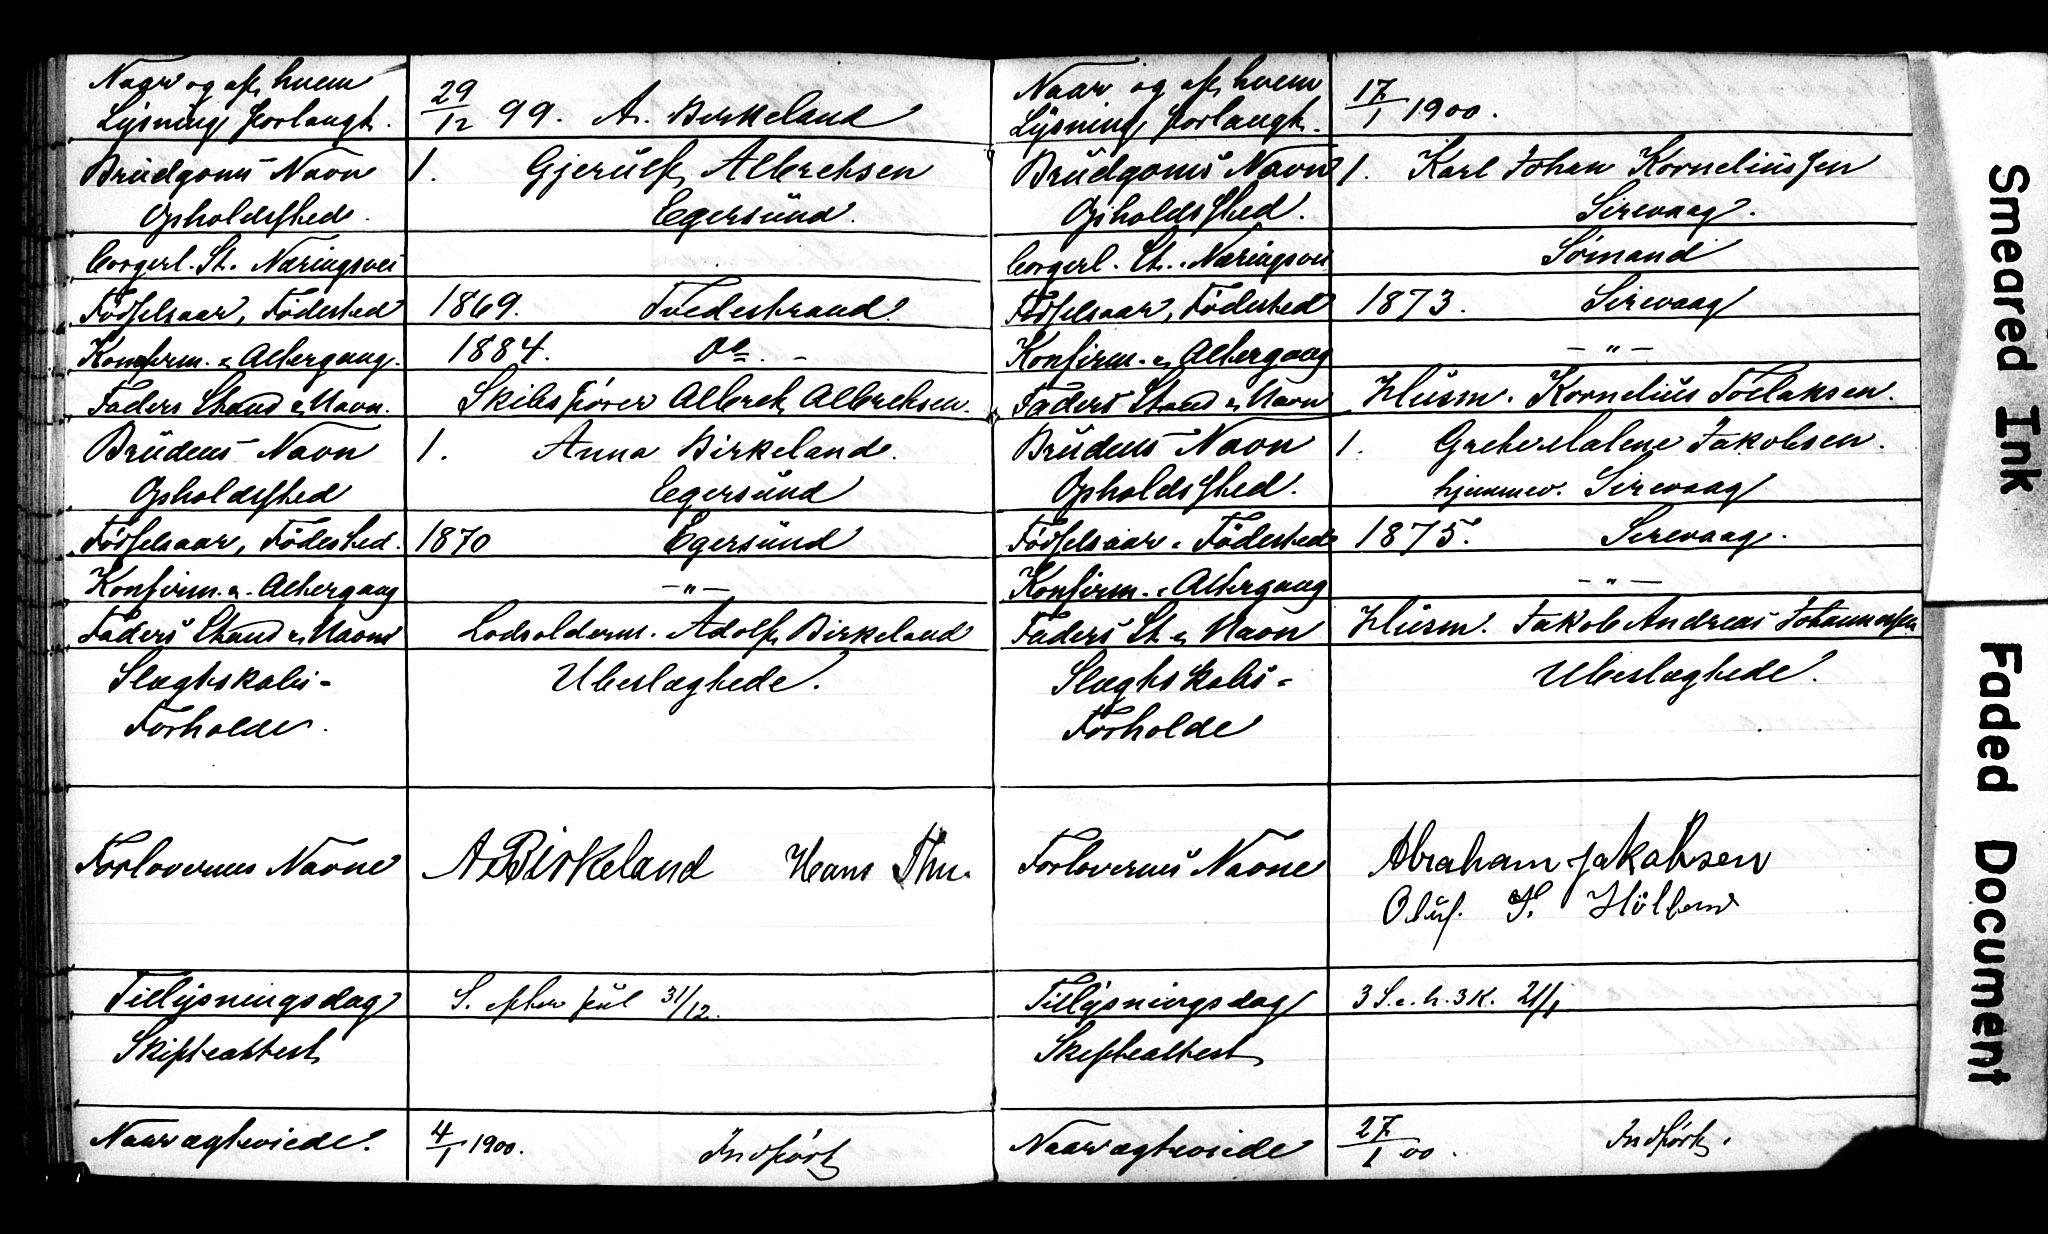 Naar og af hvem
Lysning forlangt. 29/12 99. A. Birkeland
Brudgoms Navn 1. Gjerulf Albrektsen
Opholdssted. Egersund.
borgerl. St. Næringsvei
Fødselsaar, Fødested 1869. Tvedestrand.
Konfirm. & Altergang. 1884. do. -
Faders Stand & Navn. Skibsfører Albrekt Albrektsen.
Brudens Navn 1. Anna Birkeland.
Opholdssted Egersund
Fødselsaar, Fødested. 1870 Egersund
Konfirm. &. Altergang -"-
Faders Stand & Navn Lodsolderm. Adolf Birkeland
Slægtskabs- Ubeslægtede.
Forholde.
Forlovernes Navne A Birkeland Hans
Tillysningsdag S. efter jul 31/12.
Skifteattest
Naar ægteviede. 4/1 1900. Indført
Naar og af hvem
Lysning forlangt. 17/1 1900.
Brudgoms Navn 1. Karl Johan Korneliussen
Opholdssted. Sirevaag.
borgerl. St. . Næringsvei Sømand
Fødselsaar, Fødested 1873. Sirevaag
Konfirm. & Altergang -"-
Faders Stand & Navn Husm. Kornelius Tollaksen.
Brudens Navn 1. Grete Malene Jakobsen.
Opholdssted. hjemmev. Sirevaag
Fødselsaar & Fødested 1875. Sirevaag.
Konfirm. & Altergang -"-
Faders St. & Navn Husm. Jakob Andreas Johannessen
Slægtskabs- Ubeslægtede.
Forholde
Forlovernes Navne Abraham Jakobsen
Oluf. S.
Tillysningsdag 3 S. e. h. 3 K. 21/1
Skifteattest
Naar ægteviede 27/1 00. Indført.
Smeared Ink
Faded Document